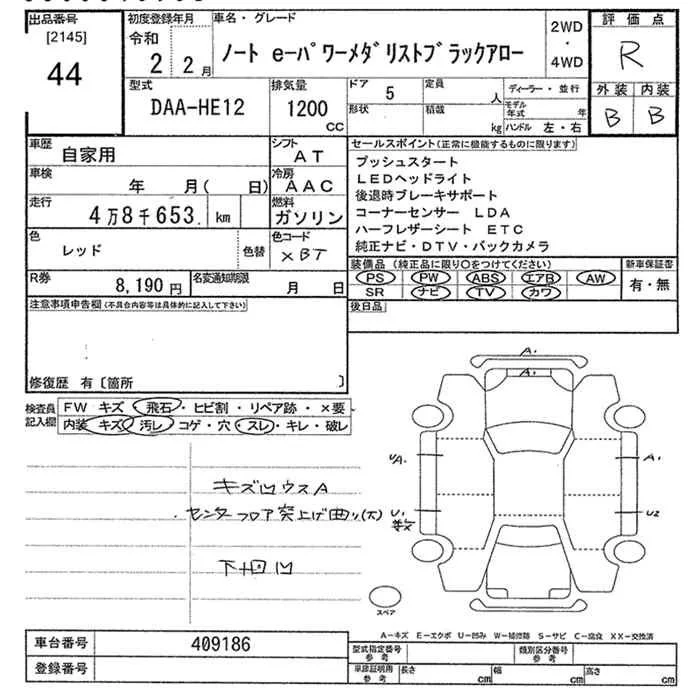 出品番号
[2145]
44
初度登録年月
令和
2 2月
車名・グレード
ノート e-パワーメダリストブラックアロー
2WD
・
4WD
評価点
R
外装 内装
B B
型式
DAA-HE12
排気量
1200
CC
ドア 5
形状
定員
人
積載
kg
ディーラー・並行
モデル年式 年
ハンドル 左・右
車歴
自家用
シフト
AT
車検
年 月( 日)
冷房
AAC
走行
4万8千653 km
燃料
ガソリン
色
レッド
色替
色コード
XBT
R券
8,190円
名変通知期限
月 日
セールスポイント(正常に機能するものに限ります)
プッシュスタート
LEDヘッドライト
後退時ブレーキサポート
コーナーセンサー LDA
ハーフレザーシート ETC
純正ナビ・DTV・バックカメラ
装備品(純正品に限り○をつけてください)
新車保証書
PS PW ABS エアB AW
SR ナビ TV カワ
有・無
後日品
注意事項申告欄(不具合内容等は具体的に記入して下さい)
修復歴 有〔箇所 〕
検査員
記入欄
FW キズ・飛石・ヒビ割・リペア跡・×要
内装 キズ・汚レ・コゲ・穴・スレ・キレ・破レ
キズ凹ウスA
センターフロア突上げ曲り(大)
下回凹
A1
A1
UA
A1
U1
U2
スペア
A-キズ E-エクボ U-凹み W-補修跡 S-サビ C-腐食 XX-交換済
車台番号
409186
登録番号
型式指定番号
参考
類別区分番号
参考
車庫証明用
参考
長さ cm
幅 cm
高さ cm